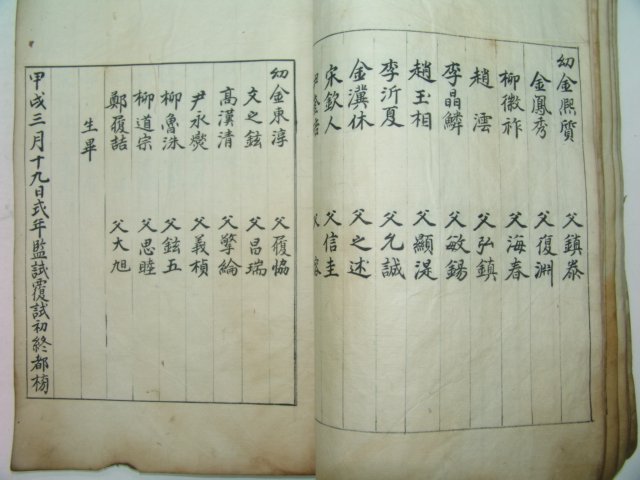 幼金熙質 父鎮泰
金鳳秀 父復淵
柳徽祚 父海春
趙澐 父弘鎮
李晶鱗 父敏錫
趙玉相 父顯湜
李沂夏 父允誠
金瀷休 父之述
宋欽人 父信圭
幼金東淳 父履恊
文之鉉 父昌瑞
高漢清 父擎綸
尹永爕 父義楨
柳魯洙 父鉉五
柳道宗 父思睦
鄭履喆 父大旭
生畢
甲戌三月十九日式年監試覆試初終都榜